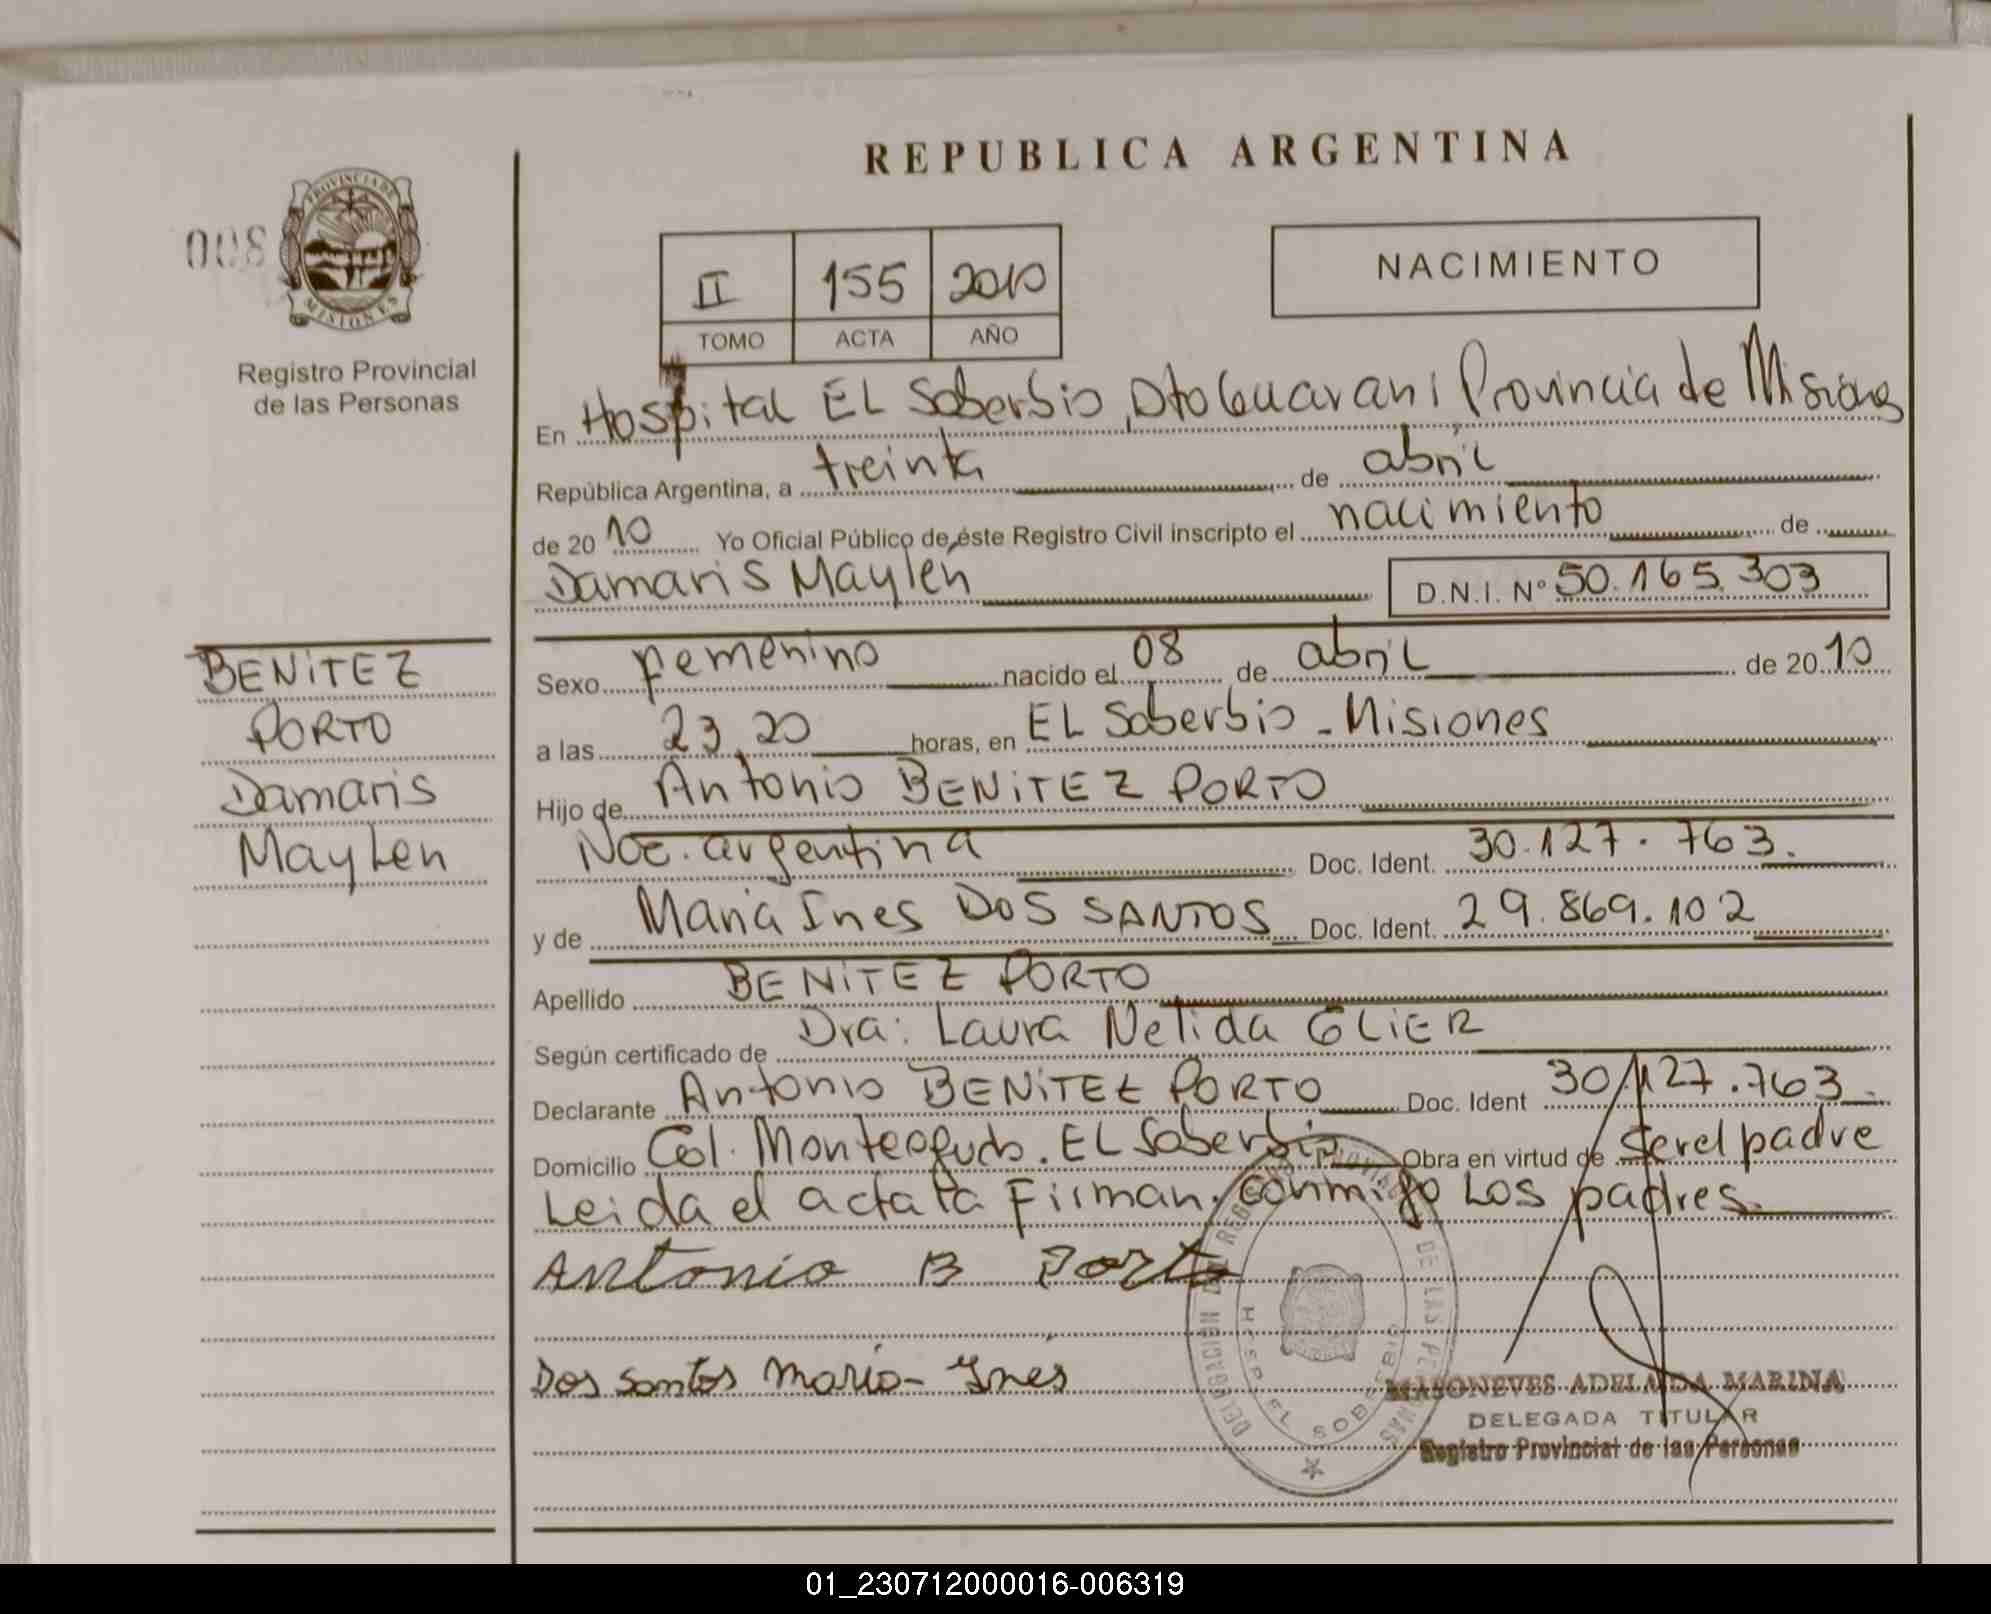 REPUBLICA ARGENTINA
008
PROVINCIA DE MISIONES
Registro Provincial
de las Personas
II 155 2010
TOMO ACTA AÑO
NACIMIENTO
En Hospital EL Soberbio, Dto Guarani Provincia de Misiones
República Argentina, a treinta de abril
de 2010 Yo Oficial Público de éste Registro Civil inscripto el nacimiento de
Damaris Maylen D.N.I. Nº 50.165.303
BENITEZ
PORTO
Damaris
Maylen
Sexo femenino nacido el 08 de abril de 2010
a las 23,20 horas, en EL Soberbio - Misiones
Hijo de Antonio BENITEZ PORTO
Nac. argentina Doc. Ident. 30.127.763.
y de Maria Ines DOS SANTOS Doc. Ident. 29.869.102
Apellido BENITEZ PORTO
Según certificado de Dra: Laura Nelida GLIER
Declarante Antonio BENITEZ PORTO Doc. Ident 30.127.763.
Domicilio Col. Monteagudo. EL Soberbio Obra en virtud de ser el padre
Leida el acta la Firman conmigo Los padres.
Antonio B Porto
Dos Santos Maria - Ines
DELEGACION REGISTRO PROVINCIAL DE LAS PERSONAS
HOSP. EL SOBERBIO
MASONEVES ADELAIDA MARINA
DELEGADA TITULAR
Registro Provincial de las Personas
01_230712000016-006319